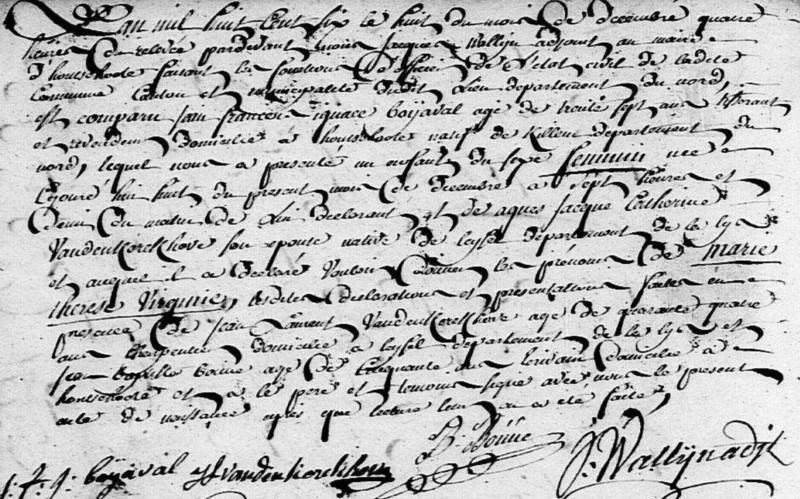 L'an mil huit cent six le huit du mois de decembre quatre
heures de relevée pardevant nous Jacques Wallijn adjoint au maire
d'hontschoote faisant les fonctions d'officier de l'état civil de ladite
commune Canton et municipalité dudit lieu departement du nord,
est comparu Jean francois ignace boÿaval agé de trente sept ans
et revendeur domicilié a hontschoote natif de Killem departement du
nord, lequel nous a presenté un enfant du sexe feminin née
cejourd hui huit du present mois de decembre a sept heures et
demi du matin de lui declarant et de agnes Jacque Catherine
Vandenkerckhove son epouse native de leysel departement de la lys
et auquel il a declaré vouloir donner les prenoms de marie
therese Virginie, lesdites declarations et presentations faites en
presence de Jean Laurent Vandenkerckhove agé de quarante quatre
ans charpentier domicilié a leysel departement de la lys et
Jean baptiste bonne agé de cinquante ans domicilié a
hontschoote et a le pere et temoins signé avec nous le present
acte de naissance apres que lecture leur en a eté faite,
B. Bonne
j. f. j. boÿaval JLvandenkerckhove J. Wallijn adjt